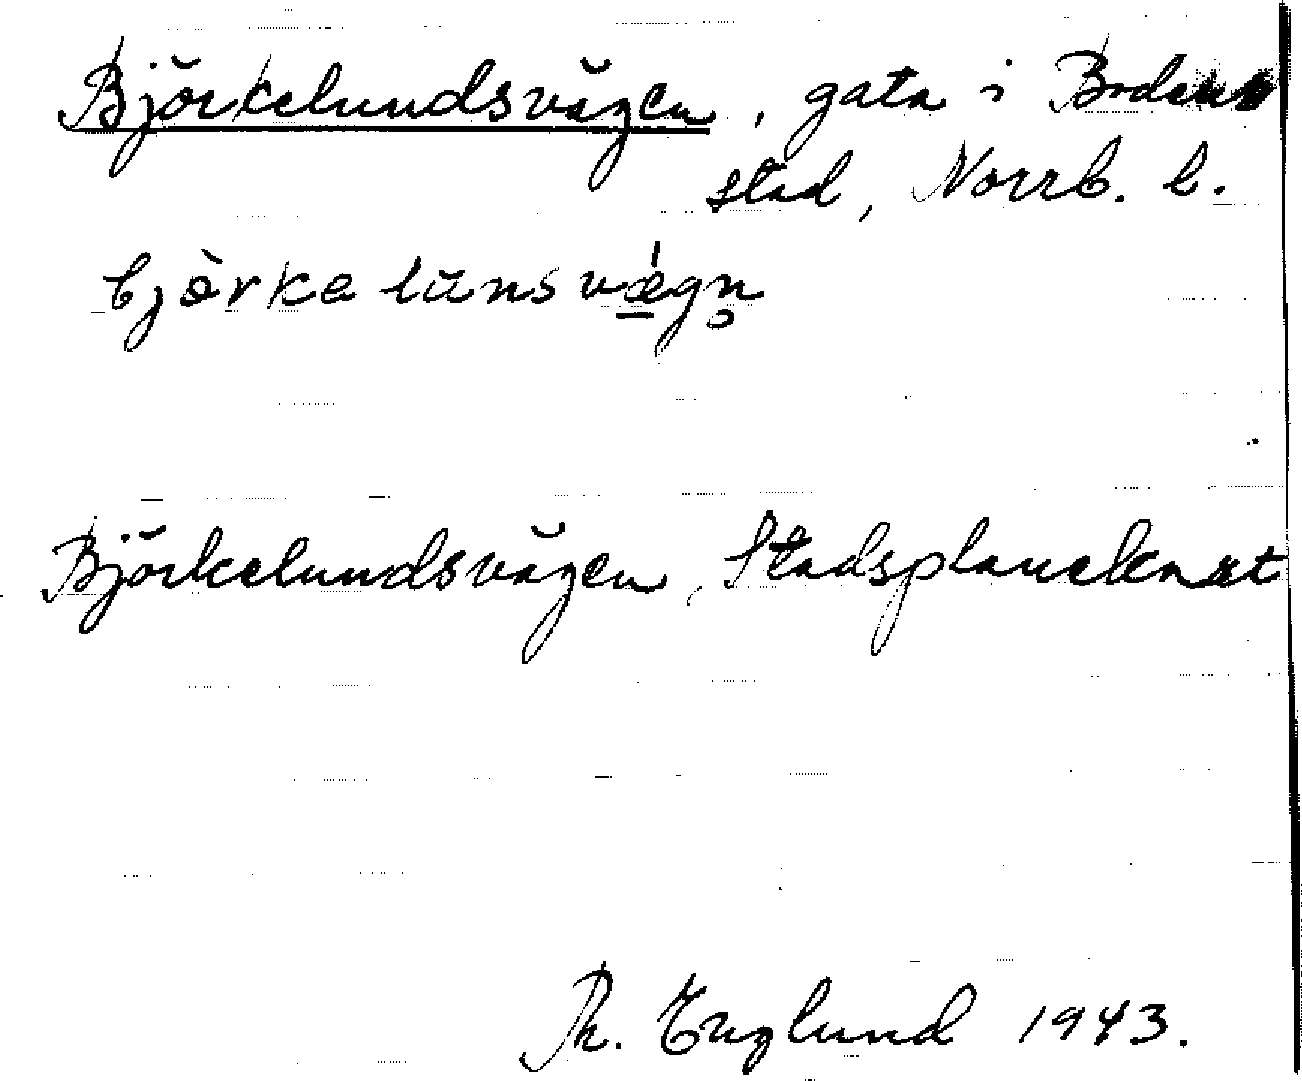 Björkelundsvägen, gata i Bodens
stad, Norrb. l.
björkelunsvægn̥
Björkelundsvägen, Stadsplanekart
R. Englund 1943.